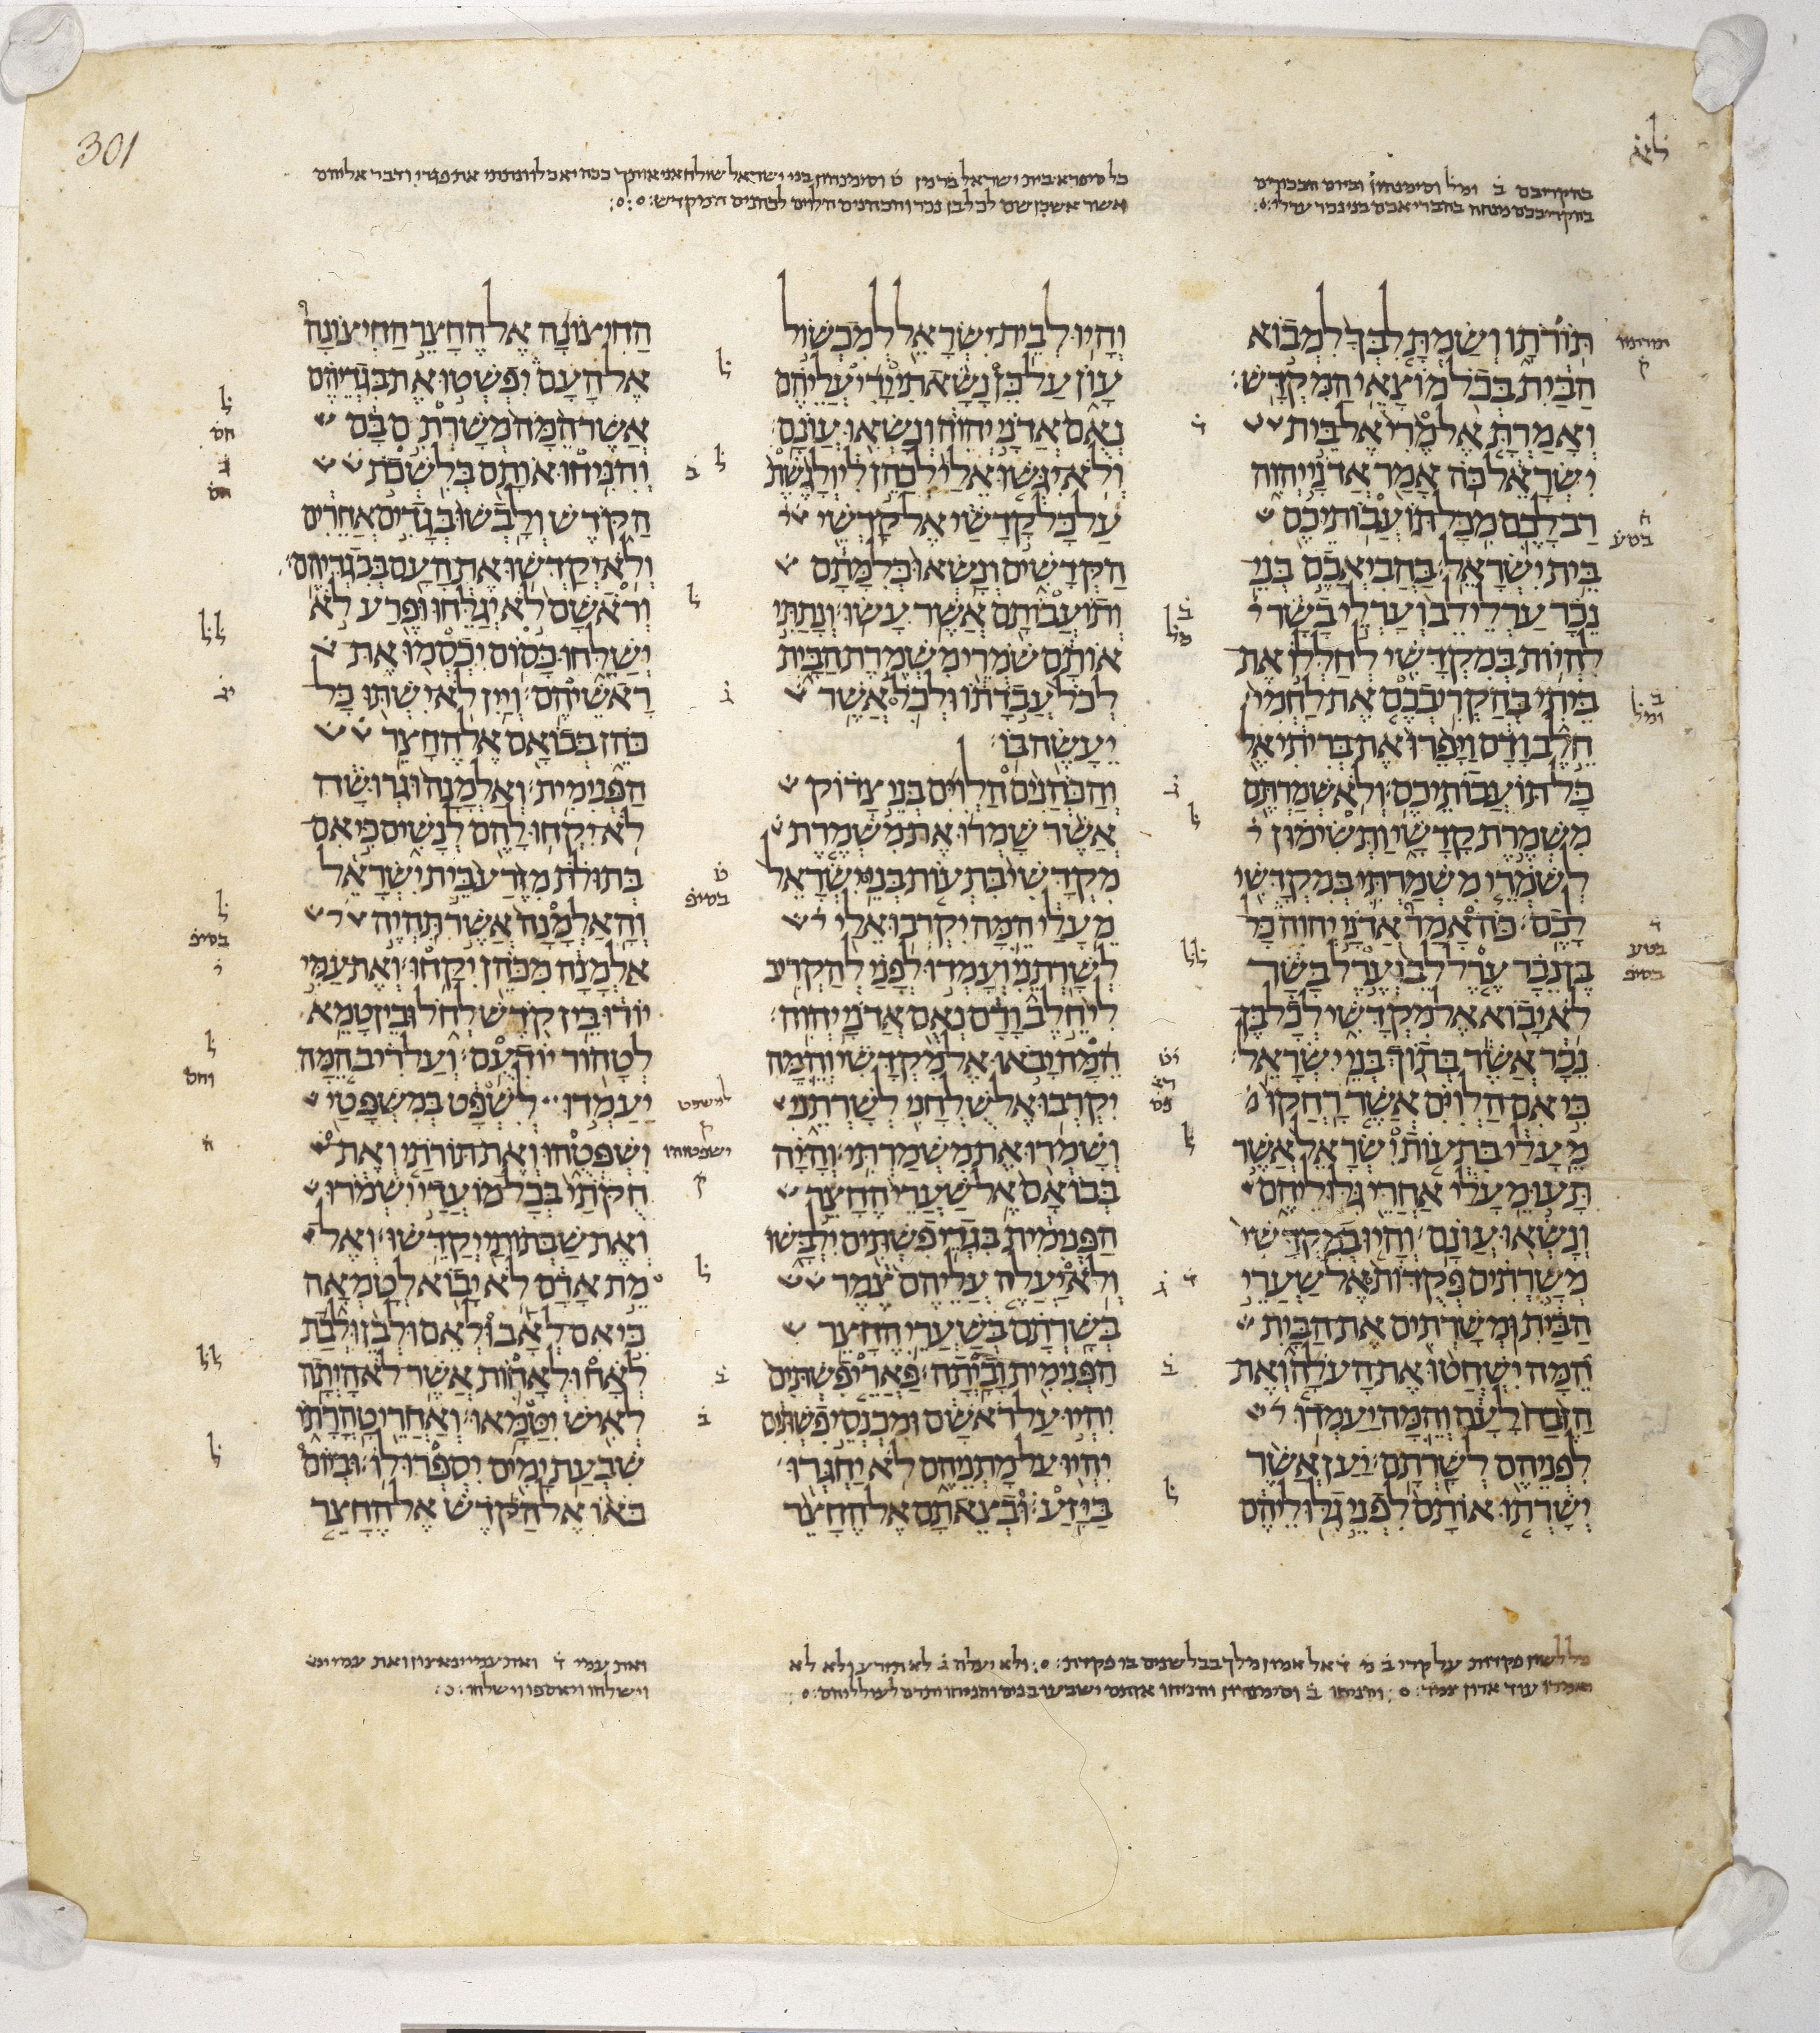 301
בהקריבם ב̇ ומל̇ וסימנהון וביום הבכורים
בהקריבכם מנחה בהביאכם בני נכר ערלי
כל סיפרא בית ישראל בר מן ט̇ וסימנהון בני ישראל שולח אני אותך
אשר אשכן שם לכל בן נכר והכהנים הלוים לכהנים המקדש
תורתו ושמת לבך למבוא
הבית בכל מוצאי המקדש׃
ואמרת אל מרי אל בית
ישראל כה אמר אדני יהוה
רב לכם מכל תועבותיכם
בית ישראל׃ בהביאכם בני
נכר ערלי לב וערלי בשר
להיות במקדשי לחללו את
ביתי בהקריבכם את לחמי
חלב ודם ויפרו את בריתי אל
כל תועבותיכם׃ ולא שמרתם
משמרת קדשי ותשימון
לשמרי משמרתי במקדשי
לכם׃ כה אמר אדני יהוה כל
בן נכר ערל לב וערל בשר
לא יבוא אל מקדשי לכל בן
נכר אשר בתוך בני ישראל׃
כי אם הלוים אשר רחקו
מעלי בתעות ישראל אשר
תעו מעלי אחרי גלוליהם
ונשאו עונם׃ והיו במקדשי
משרתים פקדות אל שערי
הבית ומשרתים את הבית
המה ישחטו את העלה ואת
הזבח לעם והמה יעמדו
לפניהם לשרתם׃ יען אשר
ישרתו אותם לפני גלוליהם
והיו לבית ישראל למכשול
עון על כן נשאתי ידי עליהם
נאם אדני יהוה ונשאו עונם׃
ולא יגשו אלי לכהן לי ולגשת
על כל קדשי אל קדשי
הקדשים ונשאו כלמתם
ותועבותם אשר עשו׃ ונתתי
אותם שמרי משמרת הבית
לכל עבדתו ולכל אשר
יעשה בו׃
והכהנים הלוים בני צדוק
אשר שמרו את משמרת
מקדשי בתעות בני ישראל
מעלי המה יקרבו אלי
לשרתני ועמדו לפני להקריב
לי חלב ודם נאם אדני יהוה׃
המה יבאו אל מקדשי והמה
יקרבו אל שלחני לשרתני
ושמרו את משמרתי׃ והיה
בבואם אל שערי החצר
הפנימית בגדי פשתים ילבשו
ולא יעלה עליהם צמר
בשרתם בשערי החצר
הפנימית וביתה׃ פארי פשתים
יהיו על ראשם ומכנסי פשתים
יהיו על מתניהם לא יחגרו
ביזע׃ ובצאתם אל החצר
החיצונה אל החצר החיצונה
אל העם יפשטו את בגדיהם
אשר המה משרתם בם
והניחו אותם בלשכת
הקדש ולבשו בגדים אחרים
ולא יקדשו את העם בבגדיהם׃
וראשם לא יגלחו ופרע לא
ישלחו כסום יכסמו את
ראשיהם׃ ויין לא ישתו כל
כהן בבואם אל החצר
הפנימית׃ ואלמנה וגרושה
לא יקחו להם לנשים כי אם
בתולת מזרע בית ישראל
והאלמנה אשר תהיה
אלמנה מכהן יקחו׃ ואת עמי
יורו בין קדש לחל ובין טמא
לטהור יודעם׃ ועל ריב המה
יעמדו לשפט במשפטי
ושפטהו ואת תורתי ואת
חקתי בכל מועדי ישמרו
ואת שבתותי יקדשו׃ ואל
מת אדם לא יבוא לטמאה
כי אם לאב ולאם ולבן ולבת
לאח ולאחות אשר לא היתה
לאיש יטמאו׃ ואחרי טהרתו
שבעת ימים יספרו לו׃ וביום
באו אל הקדש אל החצר
ולא יעלה ג̇
ואת עמי